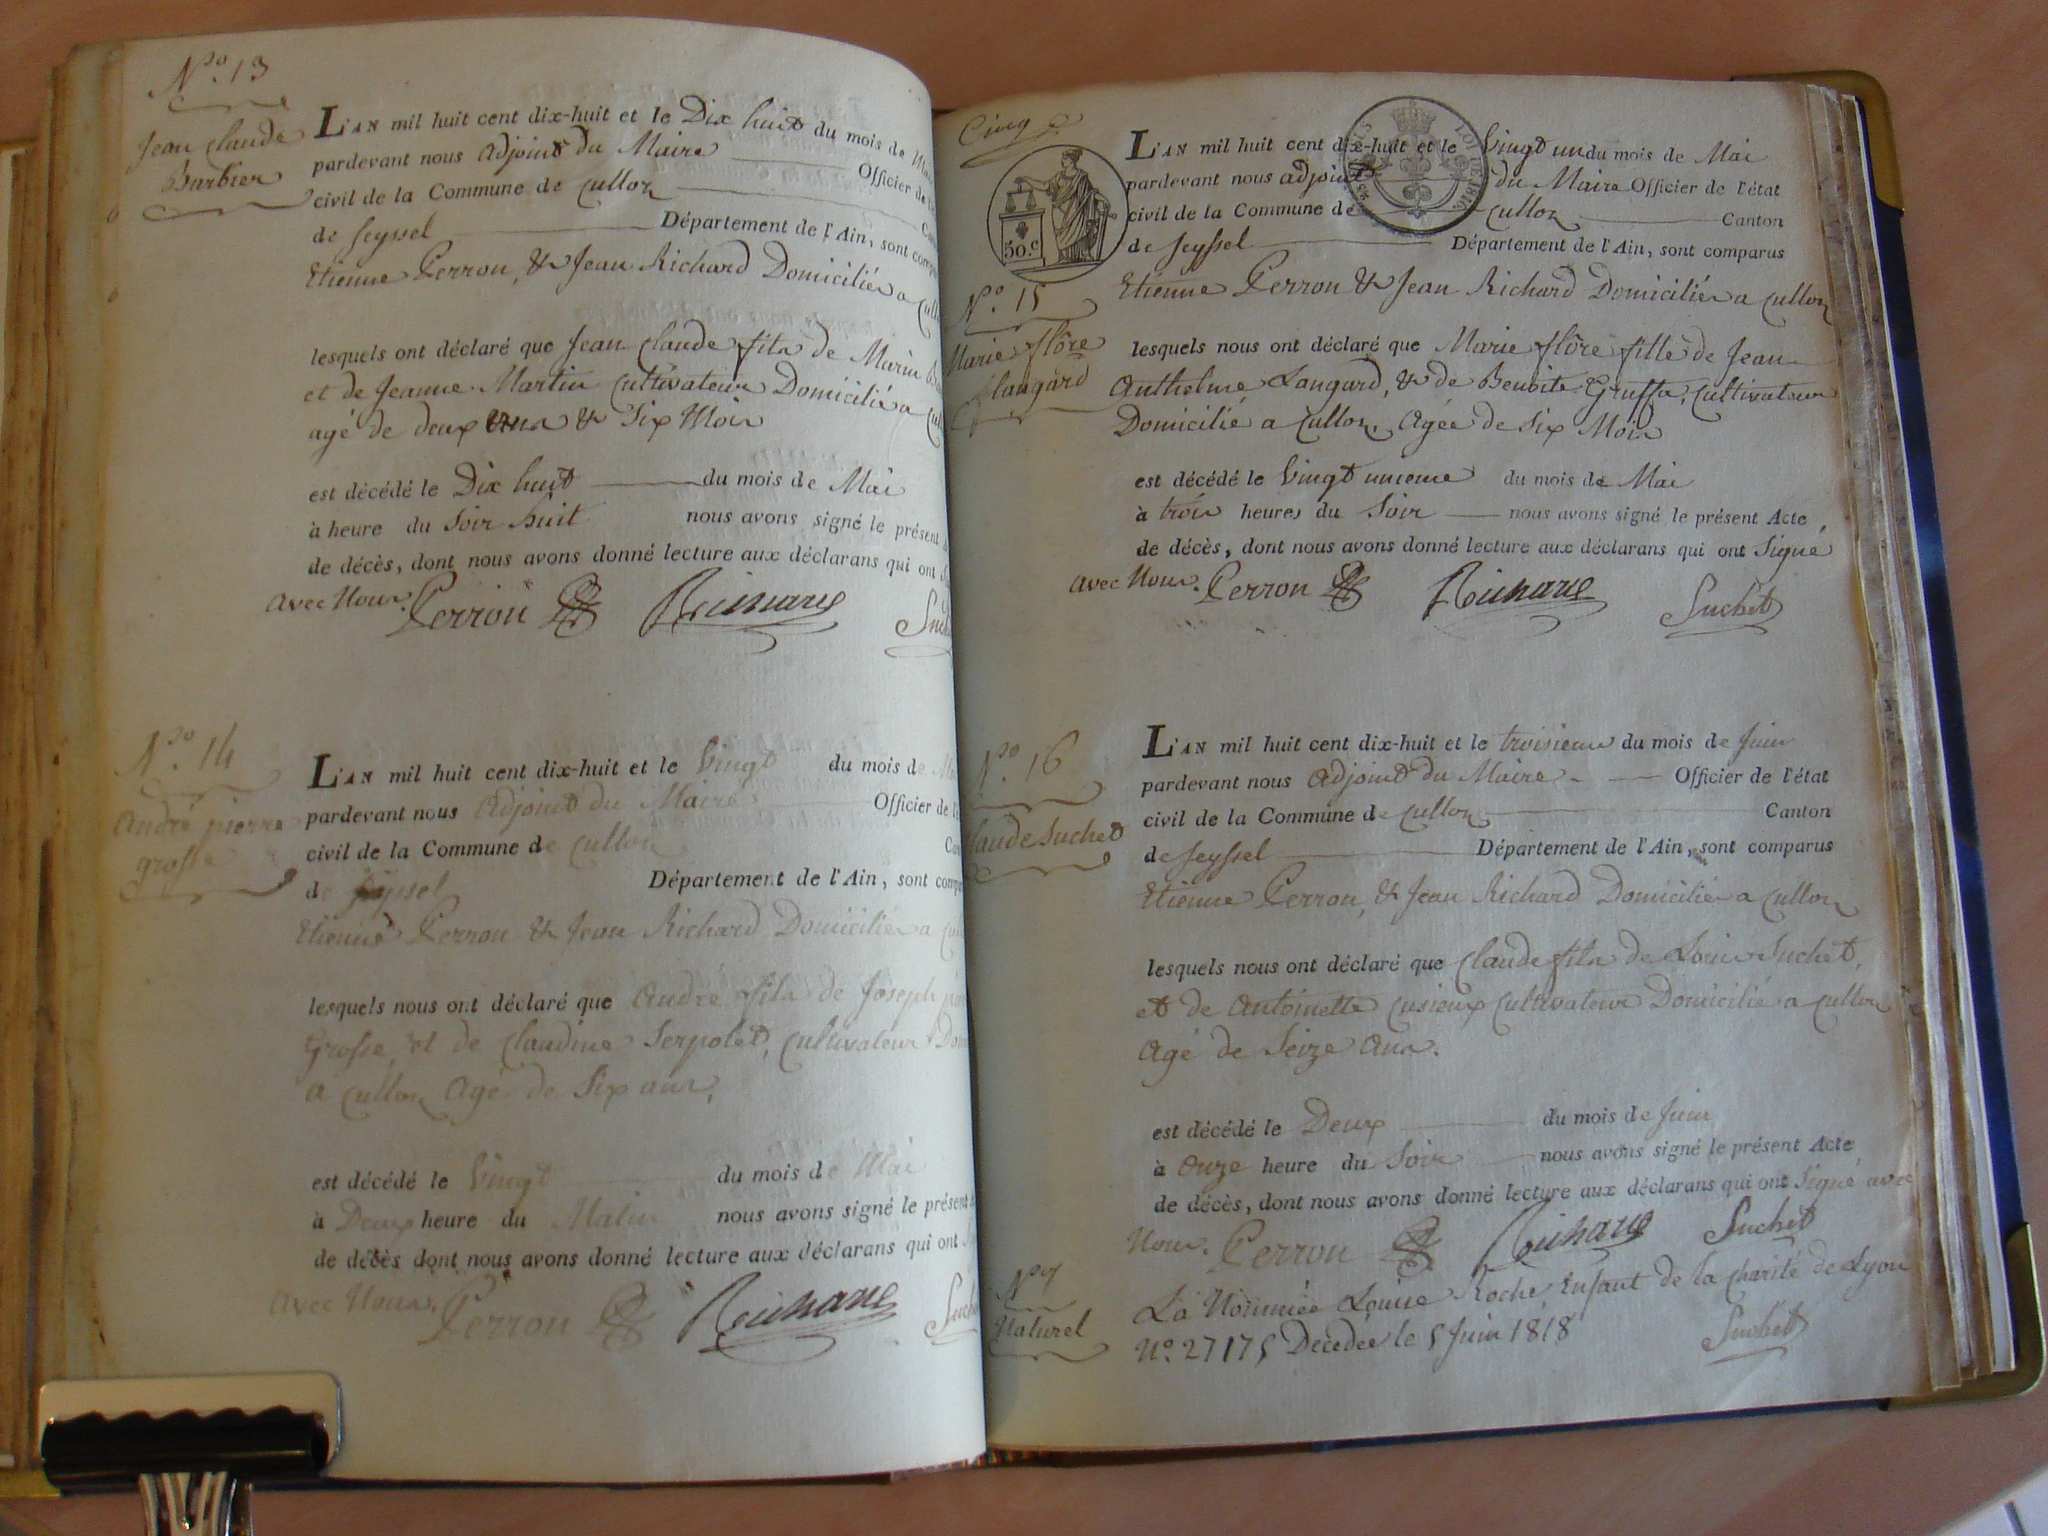 N.º 13
Jean Claude
Barbier
L'AN mil huit cent dix-huit et le Dix huit du mois de
pardevant nous Adjoint du Maire Officier de
civil de la Commune de Culloz
de Seyssel Département de l'Ain, sont
Etienne Perron, & Jean Richard Domiciliés a
lesquels ont déclaré que Jean Claude fils de Marin
et de Jeanne Martin Cultivateur Domicilié a
agé de deux ans & Six Mois
est décédé le Dix huit du mois de Mai
à heure du Soir huit nous avons signé le présent
de décès, dont nous avons donné lecture aux déclarans qui ont
avec Nous. Perron Richard
N.º 14
André pierre
grosse
L'AN mil huit cent dix-huit et le Vingt du mois de
pardevant nous Adjoint du Maire Officier de
civil de la Commune de Culloz
de Seyssel Département de l'Ain, sont
Etienne Perron & Jean Richard Domiciliés a
lesquels nous ont déclaré que André fils de Joseph
Grosse, et de Claudine Serpolet, Cultivateur
a Culloz Agé de Six ans,
est décédé le Vingt du mois de Mai
à Deux heure du Matin nous avons signé le présent
de décès dont nous avons donné lecture aux déclarans qui ont
avec Nous. Perron Richard
Cinq
50.c
LOI DE 1816
N.º 15
Marie flôre
Langard
L'AN mil huit cent dix-huit et le Vingt un du mois de Mai
pardevant nous adjoint du Maire Officier de l'état
civil de la Commune de Culloz Canton
de Seyssel Département de l'Ain, sont comparus
Etienne Perron & Jean Richard Domiciliés a Culloz
lesquels nous ont déclaré que Marie flôre fille de Jean
Anthelme Langard, & de Benoite Gruffa, Cultivateur
Domicilié a Culloz, Agée de Six Mois
est décédé le Vingt unieme du mois de Mai
à trois heures du Soir nous avons signé le présent Acte,
de décès, dont nous avons donné lecture aux déclarans qui ont Signé
avec Nous. Perron Richard Suchet
N.º 16
Claude Suchet
L'AN mil huit cent dix-huit et le troisieme du mois de Juin
pardevant nous Adjoint du Maire Officier de l'état
civil de la Commune de Culloz Canton
de Seyssel Département de l'Ain, sont comparus
Etienne Perron, & Jean Richard Domiciliés a Culloz
lesquels nous ont déclaré que Claude fils de Louis Suchet,
et de Antoinette Cusieux Cultivateur Domicilié a Culloz
Agé de Seize Ans.
est décédé le Deux du mois de Juin
à Onze heure du Soir nous avons signé le présent Acte
de décès, dont nous avons donné lecture aux déclarans qui ont Signé avec
Nous. Perron Richard Suchet
Naturel
La Nommée Louise Roche Enfant de la Charité de Lyon
N.º 27175 Décédée le 5 Juin 1818 Suchet